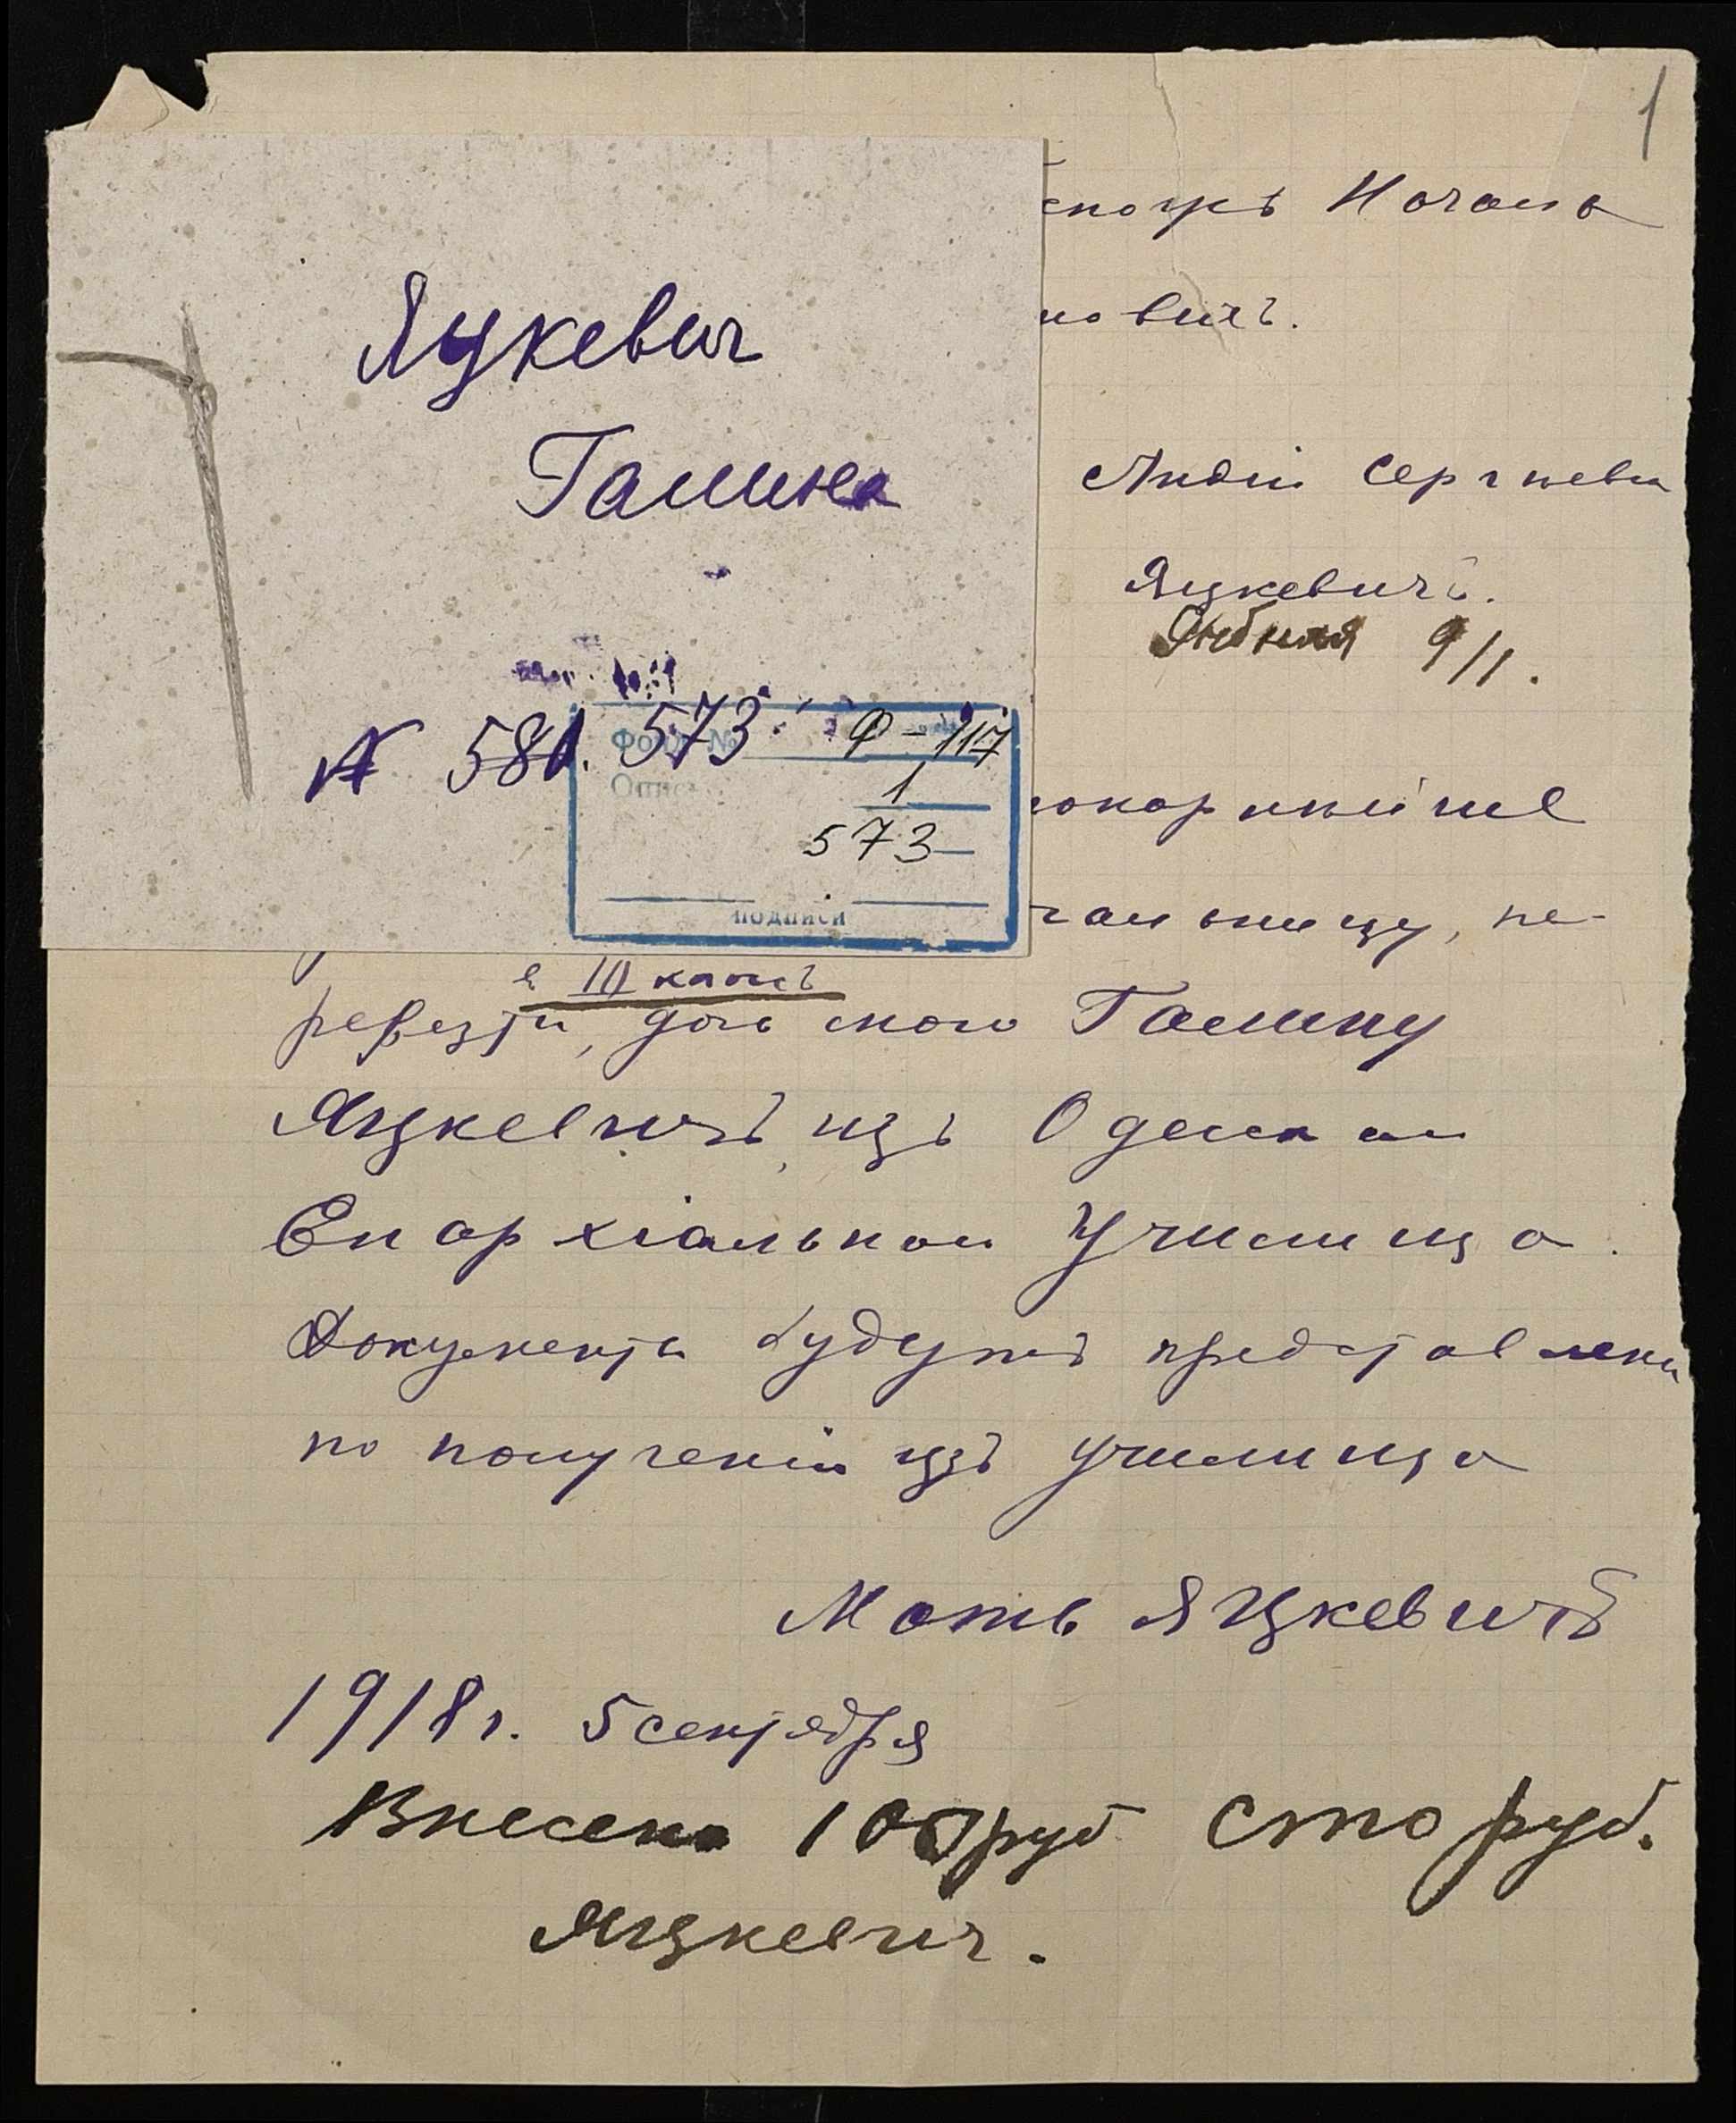 1
Яцкевич
Галина
№ 581. 573
Фонд №
Ф-117
Опис
1
573
подписи
Начала
новичъ.
Лидіи Сергѣевн
Яцкевичъ.
9/1.
покорнѣйше
чальницу, пе-
в III классъ
ревезти, дочь мою Галину
Яцкевичъ изъ Одесскаго
Епархіальнаго Училища.
Документы будутъ представлены
по полученіи изъ училища
Мать Яцкевичъ
1918 г. 5 сентября
Внесено 100 руб сто руб.
Яцкевич.